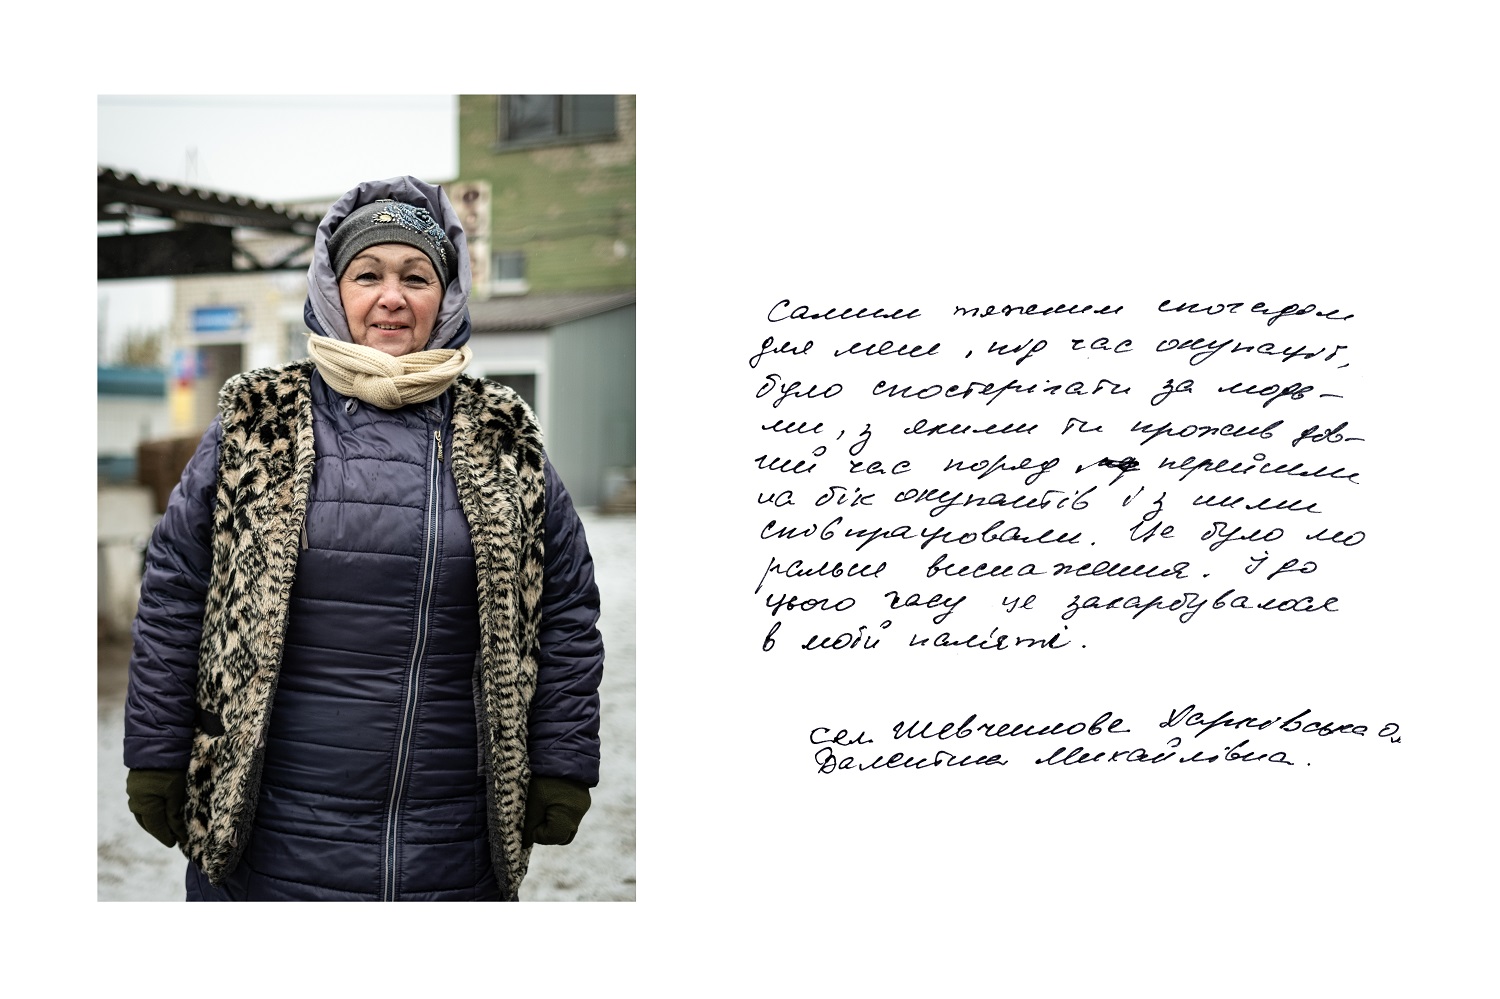 Самим тяжким спогадом
для мене, під час окупації,
було спостерігати за людь-
ми, з якими ти прожив дов-
гий час поряд перейшли
на бік окупантів і з ними
співпрацювали. Це було мо
ральне виснаження. І до
цього часу це закарбувалося
в моїй пам'яті.
сел. Шевченкове Харківська о.
Валентина Михайлівна.